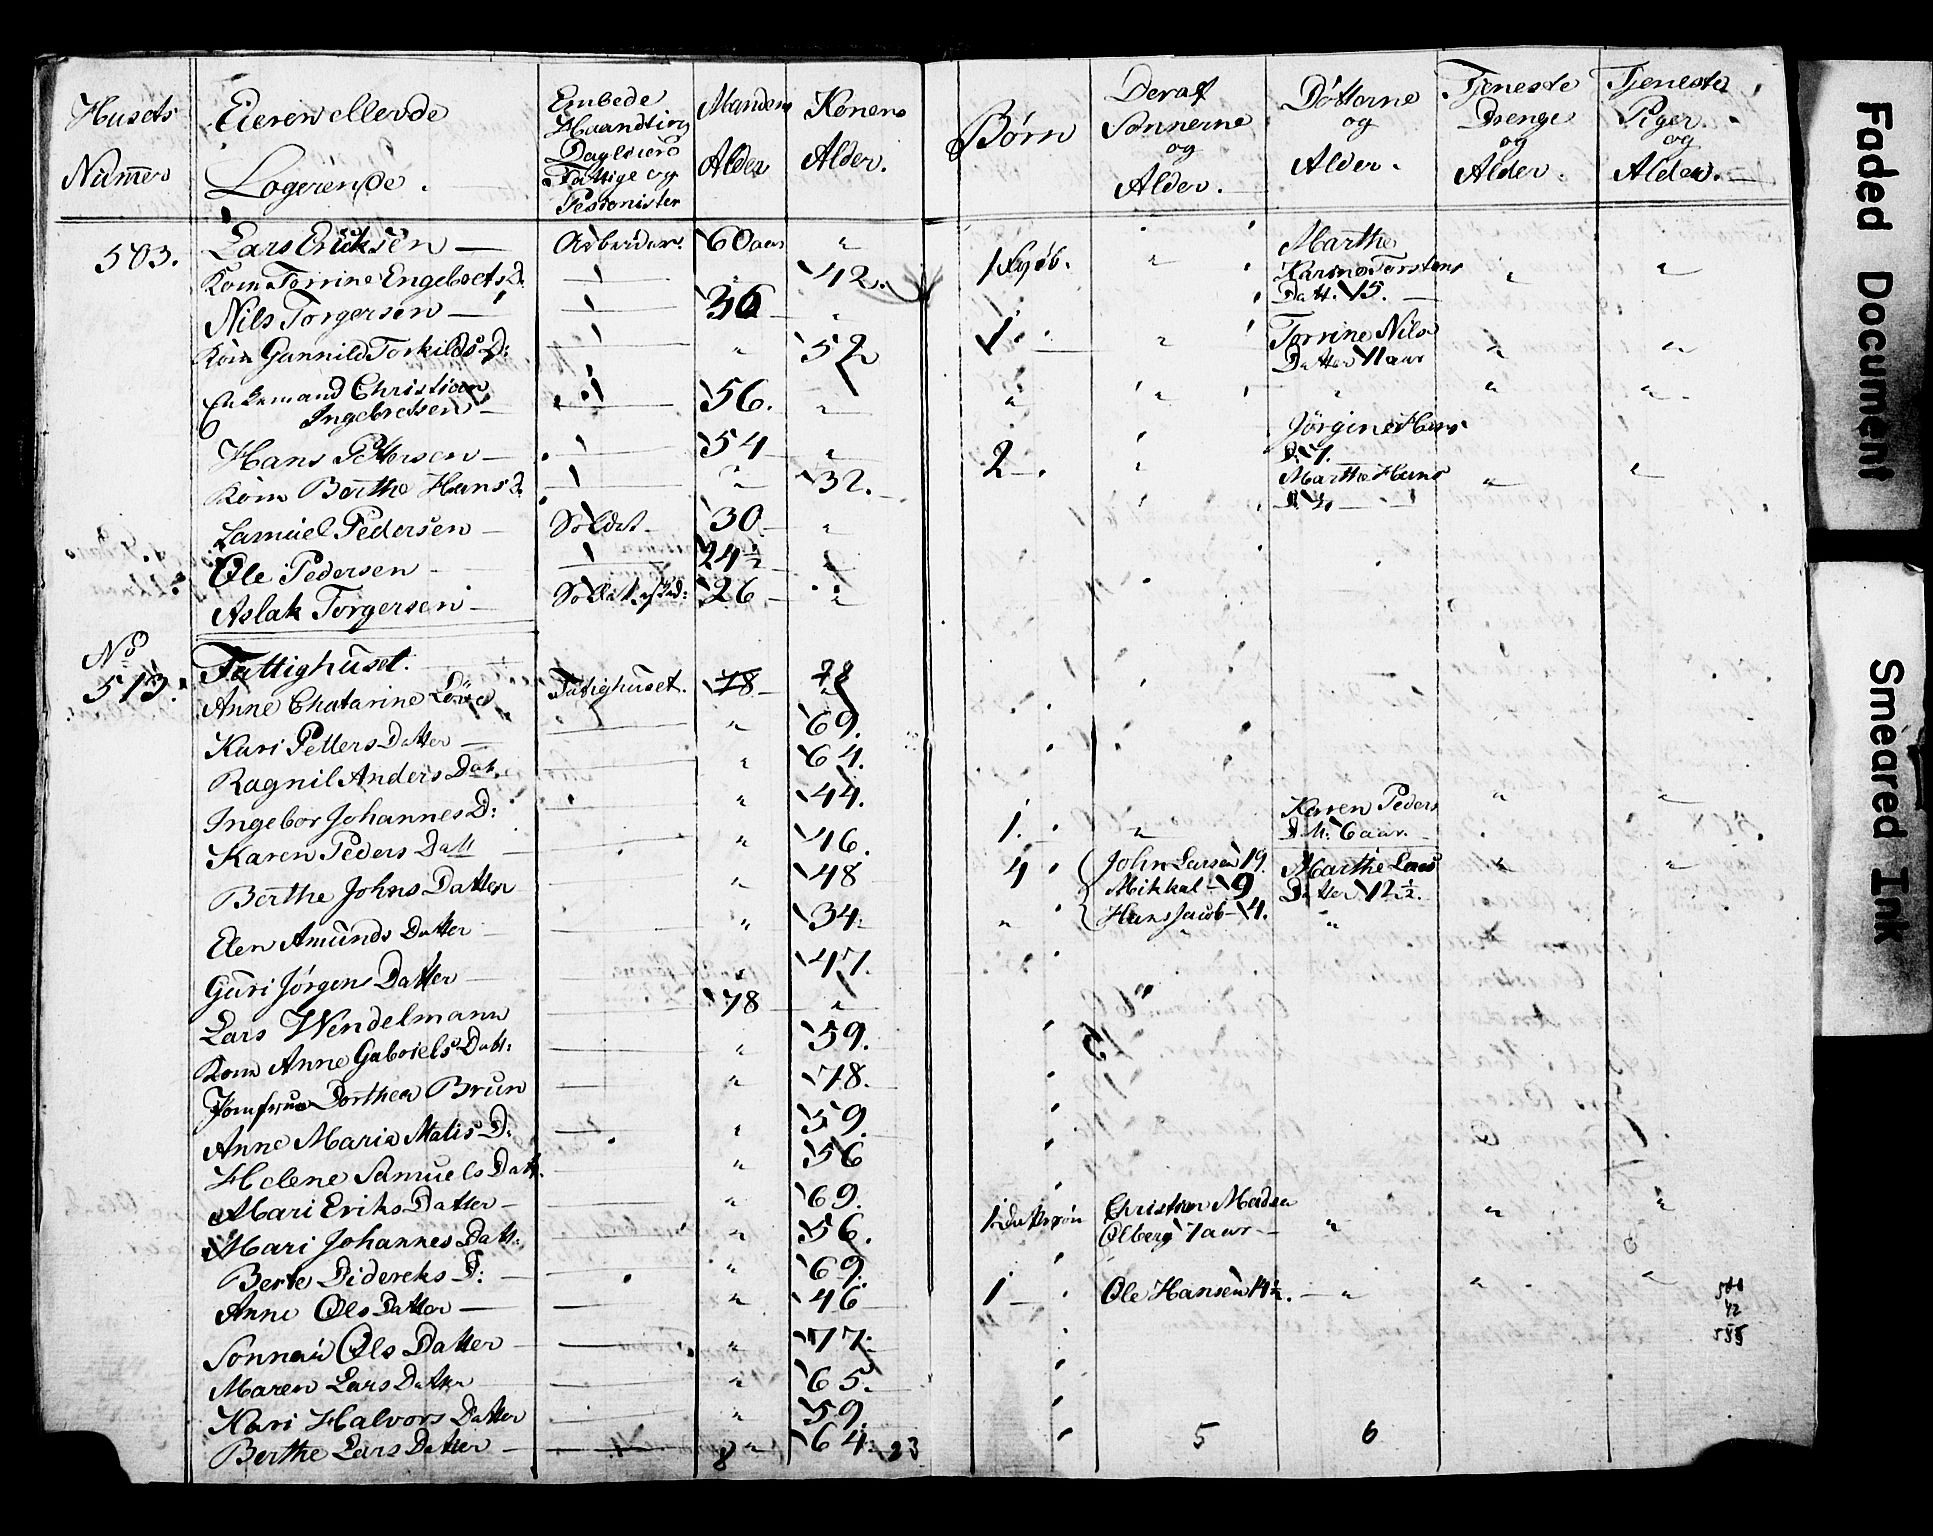 Husets Numer
Eieren ellerde Logerende.
Embede Haandtir Dagleiere Fattige og Pesionister
Mandens Alder
Konens Alder.
Børn
Deraf Sønnerne og Alder.
Døttorne og Alder.
Tjeneste Drenge og Alder.
Tjeneste Piger og Alder.
503. Lars Ericksen — Arbeider. 60 aar "
Kone Torrine Engebrets D. — " 42. 1 " Marthe Karine Torstens Datt. 15. " "
Nils Torgersen — 36 "
Kone Gunnild Torkilds D: — " 52 1 " Torrine Nils Datter 11 aar " "
Enkemand Christian Ingebretsen — 56. " " " " " "
Hans Pettersen — 54 "
Kone Berthe Hans D. — " 32. 2 — " Jørgine Hans D. 7. Marthe Hans D. " "
Samuel Pedersen — Soldat 30 "
Ole Pedersen — 24½ "
Aslak Torgersen — 26 "
No 513. Fattighuset.
Anne Chatarine Fatighuset. 78 78
Kari Petters Datter — " 69.
Ragnil Anders Dat. — " 64.
Ingebor Johannes D: — " 44.
Karen Peders Datt — " 46. 1. " Karen Peders Dat. 6 aar. " "
Berthe Johns Datter — " 48 4 John Larsen 19. Marthe Lars Datter 12½. " "
Mikkal — 9
Hans Jacob — 4.
Elen Amunds Datter — " 34. " "
Guri Jørgens Datter — " 47.
Lars Wendelmann — 78 "
Kone Anne Gabriels Datt. — " 59.
Jomfrue Dorthea Brun — " 78.
Anne Maria Matis D. — " 59.
Helene Samuels Datt. — " 56
Mari Eriks Datter — " 69. 1 Christian Madsen Olberg 7 aar — " " "
Mari Johannes Datt. — " 56.
Berte Didereks D: — " 69.
Anne Ols Datter — " 46 1 — Ole Hansen 14½. — " " "
Ols Datter — " 77.
Maren Lars Datter — " 65.
Kari Halvors Datter — " 59.
Berthe Lars Datter — " 64.
8 23 5 6
Faded Document
Smeared Ink